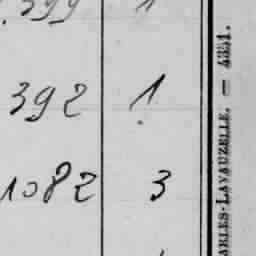 399 1
392 1
1082 3
ARLES-LAVAUZELLE. — 4351.